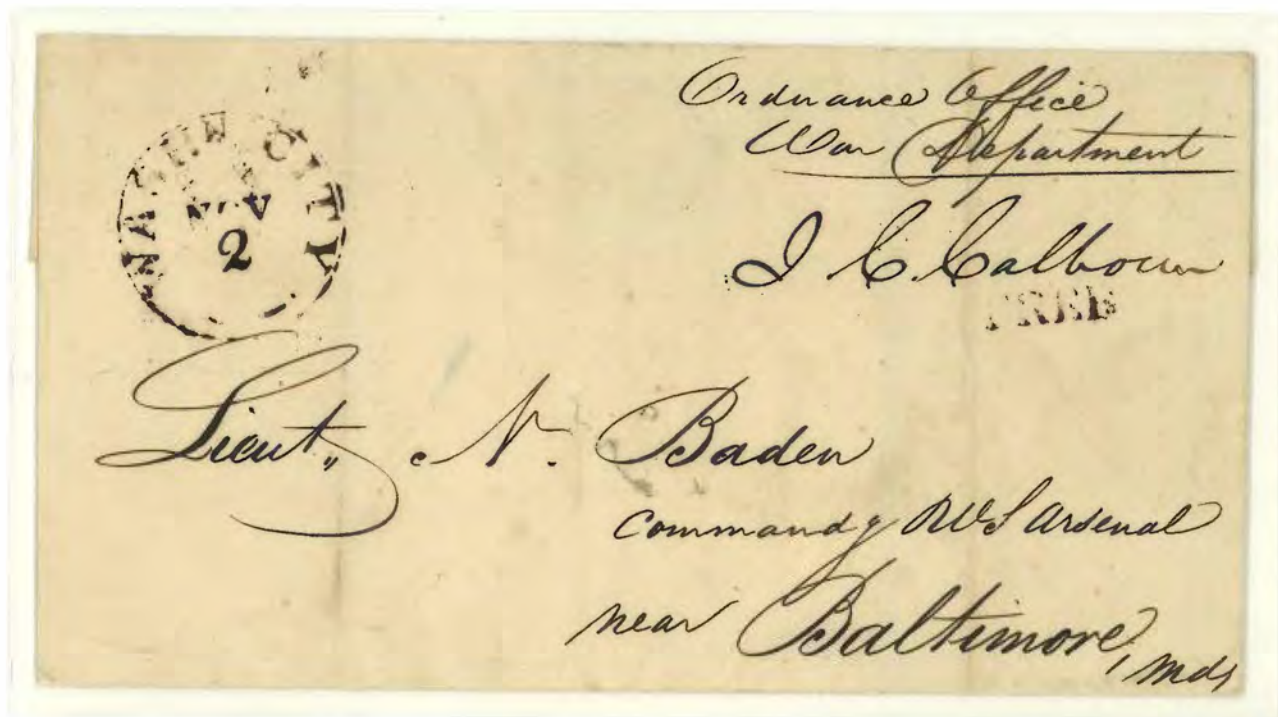 WASHN CITY
NOV
2
Ordnance Office
War Department
J C. Calhoun
FREE
Lieut,, N. Baden
Commandg U.S Arsenal
near Baltimore, Mdy